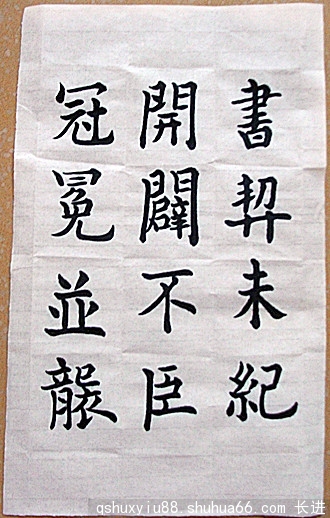 書契未紀
開闢不臣
冠冕並襲
qshuxyiu88.shuhua66.com 长进